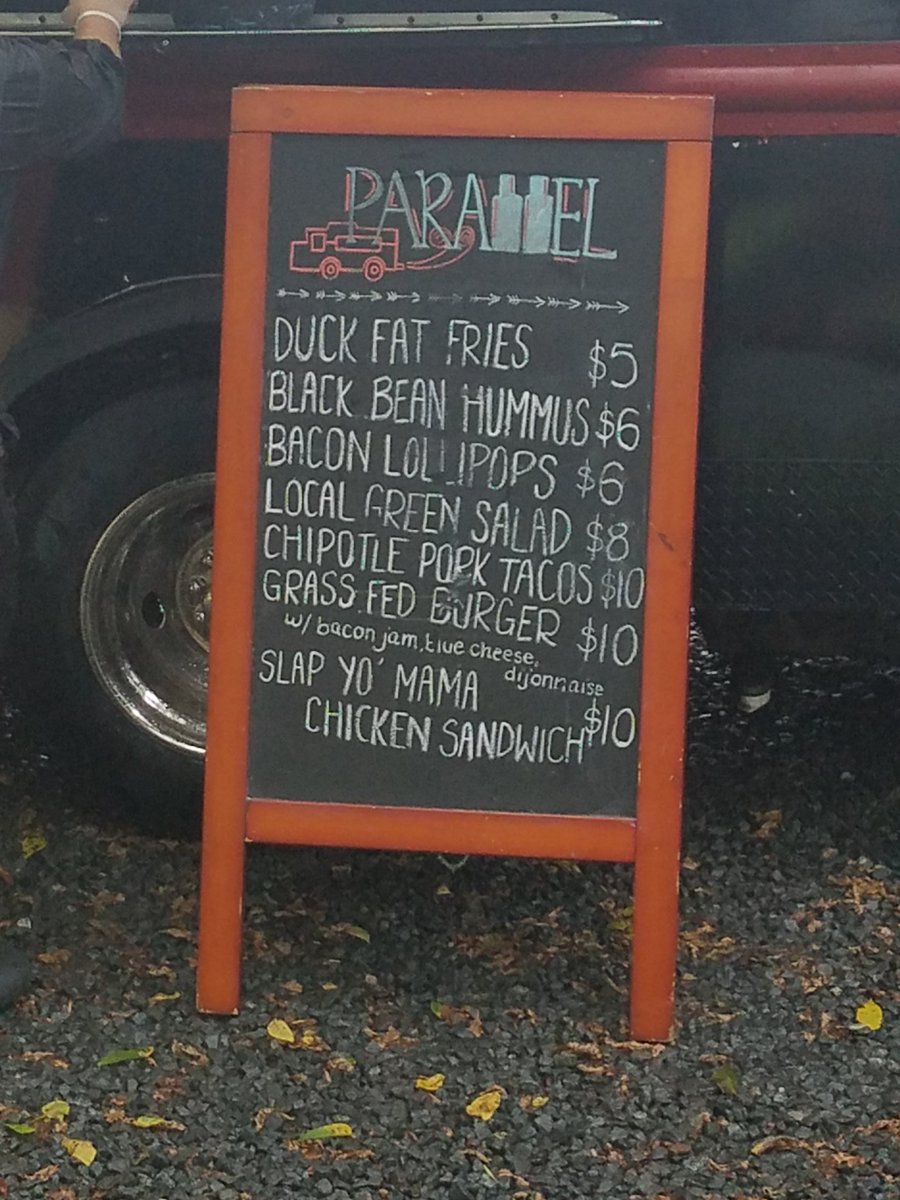 PARALLEL
DUCK FAT FRIES $5
BLACK BEAN HUMMUS $6
BACON LOLLIPOPS $6
LOCAL GREEN SALAD $8
CHIPOTLE PORK TACOS $10
GRASS FED BURGER $10
w/ bacon jam, blue cheese,
dijonnaise
SLAP YO' MAMA
CHICKEN SANDWICH $10